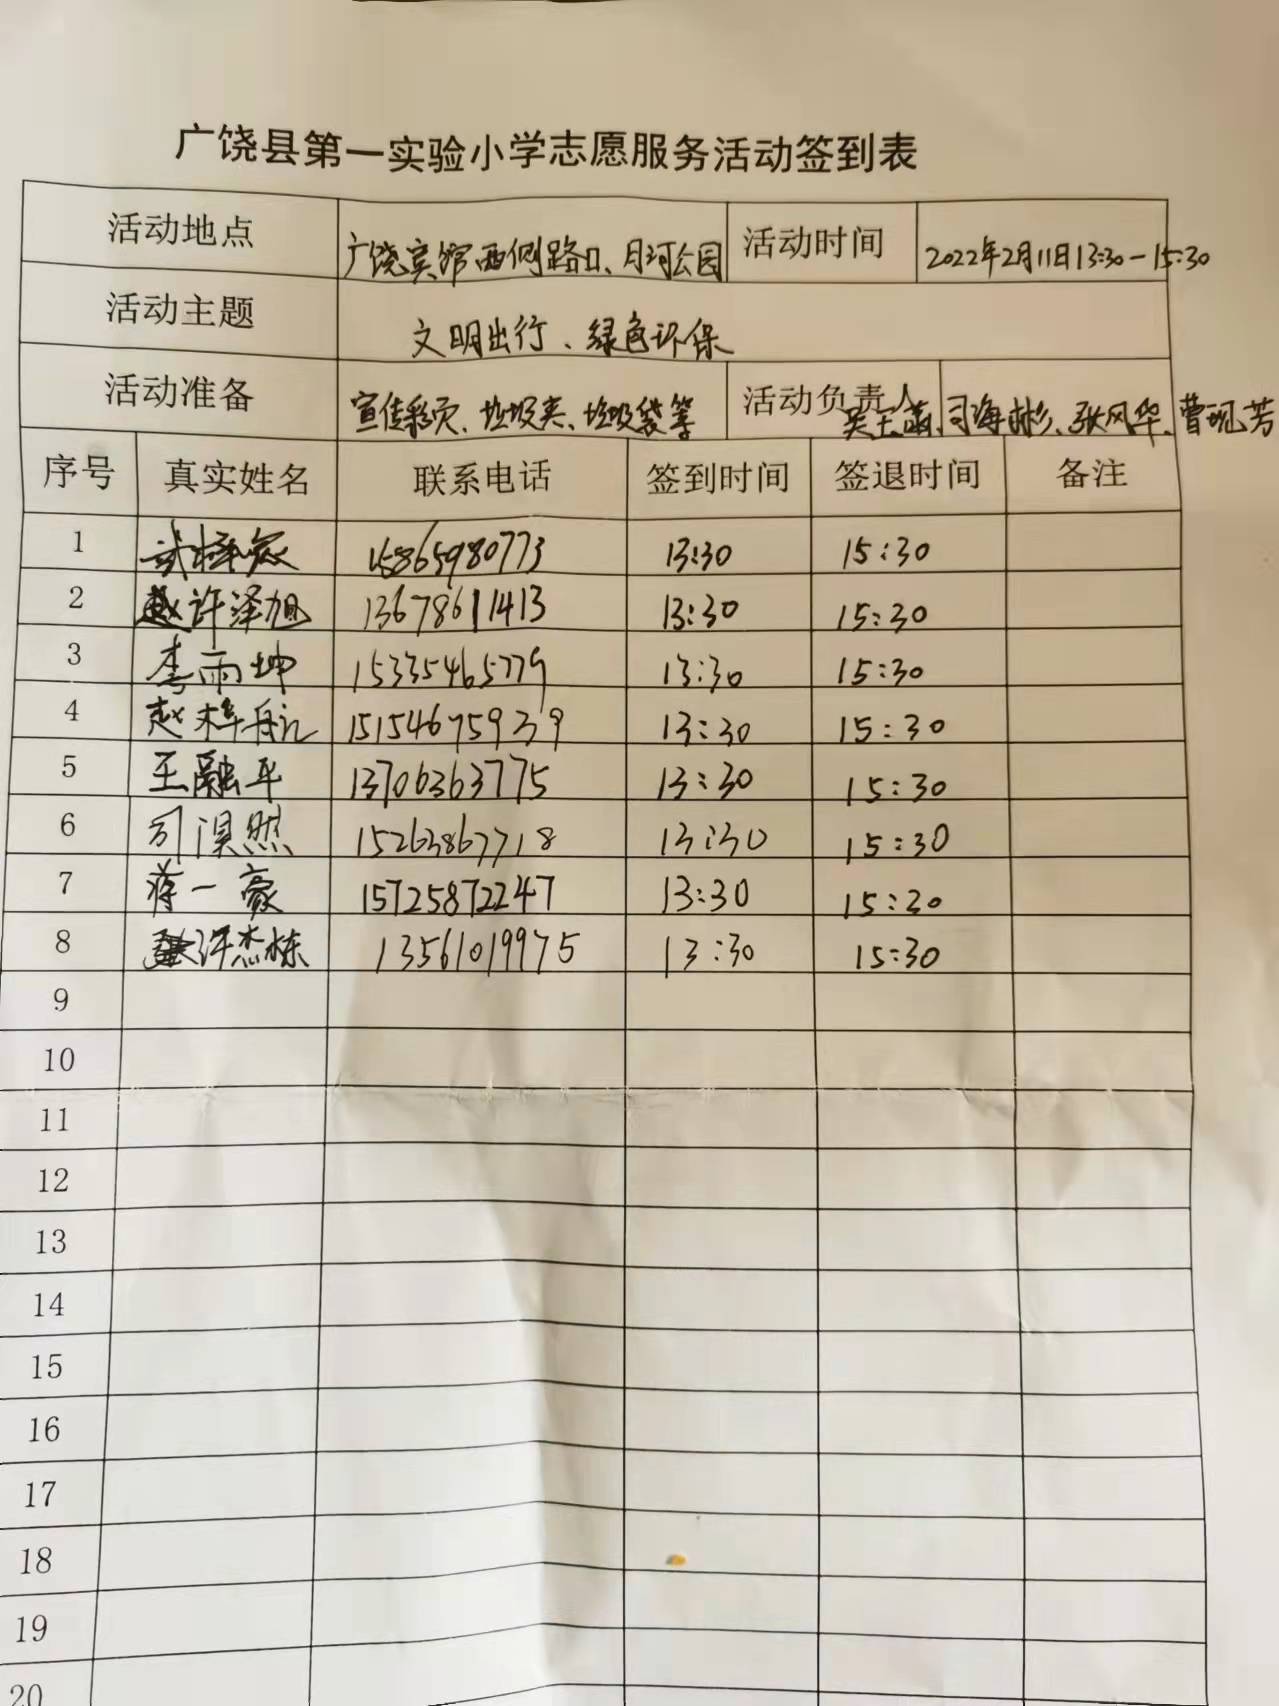 广饶县第一实验小学志愿服务活动签到表
活动地点 广饶宾馆西侧路口、月河公园 活动时间 2022年2月11日13:30-15:30
活动主题 文明出行、绿色环保
活动准备 宣传彩页、垃圾夹、垃圾袋等 活动负责人 司海彬、张风华、曹现芳
序号 真实姓名 联系电话 签到时间 签退时间 备注
1 15865980773 13:30 15:30
2 许泽旭 13678611413 13:30 15:30
3 李雨坤 15335465779 13:30 15:30
4 赵梓 15154675939 13:30 15:30
5 王融平 13706363775 13:30 15:30
6 司淏然 15263867718 13:30 15:30
7 蒋一豪 15725872247 13:30 15:30
8 许杰栋 13561019975 13:30 15:30
9
10
11
12
13
14
15
16
17
18
19
20